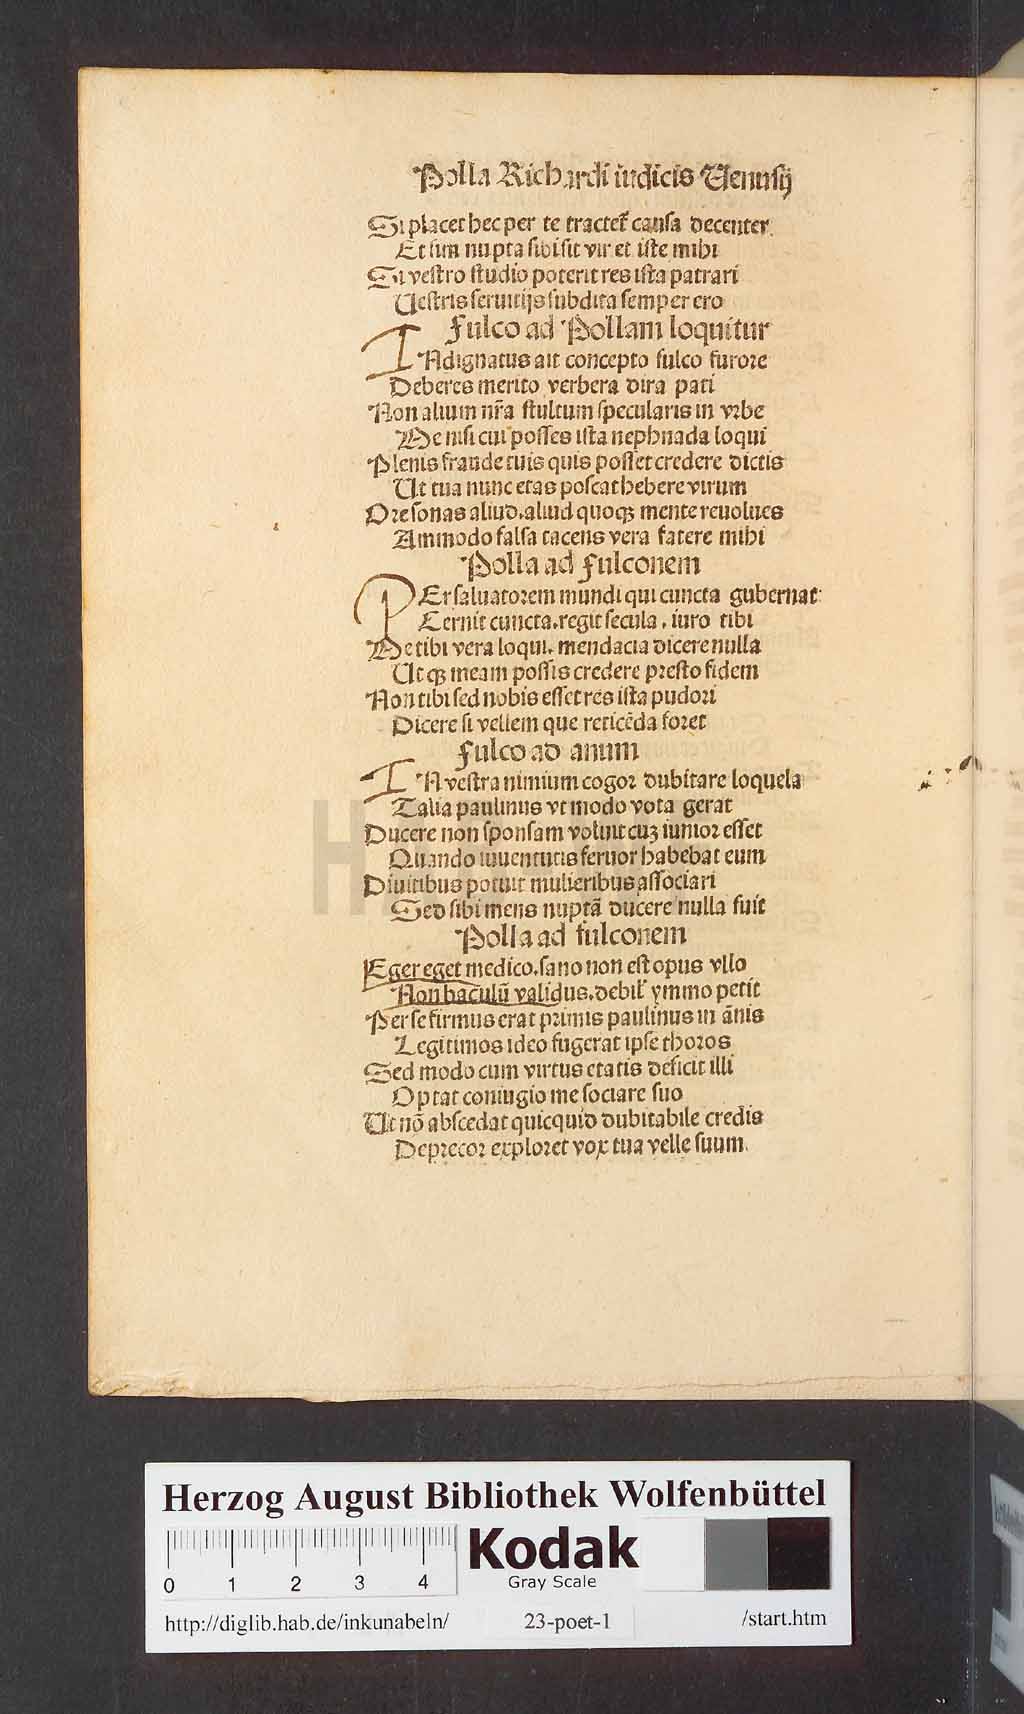 Polla Richardi iudicis Venusij
Si placet hec per te tractet᷑ causa decenter.
Et sim nupta sibi sit vir et iste mihi
Si vestro studio poterit res ista patrari
Vestris seruitijs subdita semper ero
Fulco ad Pollam loquitur
INdignatus ait concepto fulco furore
Deberes merito verbera dira pati
Non alium nr̄a stultum specularis in vrbe
Me nisi cui posses ista nephnada loqui
Plenis fraude tuis quis posset credere dictis
Ut tua nunc etas poscat hebere virum
Ore sonas aliud. aliud quoqȝ mente reuolues
Ammodo falsa tacens vera fatere mihi
Polla ad fulconem
PEr saluatorem mundi qui cuncta gubernat:
Cernit cuncta. regit secula. iuro tibi
Me tibi vera loqui. mendacia dicere nulla
Utqȝ meam possis credere presto fidem
Non tibi sed nobis esset res ista pudori
Dicere si vellem que reticēda foret
fulco ad anum
IN vestra nimium cogor dubitare loquela
Talia paulinus vt modo vota gerat
Ducere non sponsam voluit cuȝ iunior esset
Quando iuuentutis feruor habebat eum
Diuitibus potuit mulieribus associari
Sed sibi mens nuptā ducere nulla fuit
Polla ad fulconem
Eger eget medico. sano non est opus vllo
Non baculū validus. debil᷑ ymmo petit
Per se firmus erat primis paulinus in ānis
Legitimos ideo fugerat ipse thoros
Sed modo cum virtus etatis deficit illi
Optat coniugio me sociare suo
Ut nō abscedat quicquid dubitabile credis
Deprecor exploret vox tua velle suum.
HAB
Herzog August Bibliothek Wolfenbüttel
0 1 2 3 4
Kodak
Gray Scale
http://diglib.hab.de/inkunabeln/ 23-poet-1 /start.htm